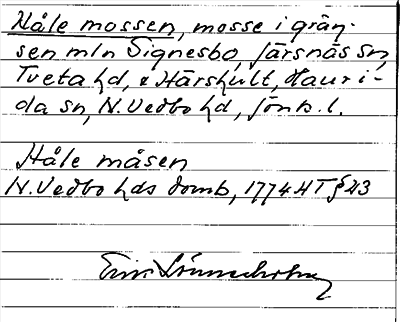 Håle mossen, mosse i grän-
sen mln Signesbo, Järsnäs sn,
Tveta hd, & Härshult, Hauri-
da sn, N. Vedbo hd, Jönk. l.
Håle måsen
N. Vedbo hds domb, 1774 HT § 43